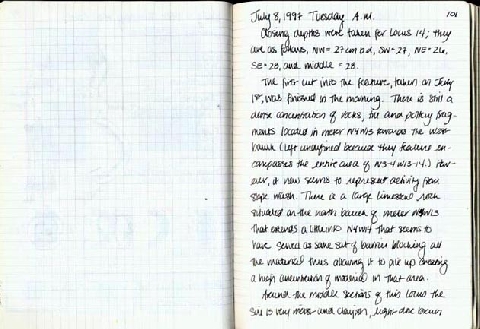 July 8, 1997 Tuesday A.M.
101
Closing depths were taken for Locus 14; they
are as follows, NW = 27cm b.d, SW = 27, NE = 26,
SE = 28, and middle = 28.
The first cut into the feature, taken on July
1st, was finished in the morning. There is still a
dense concentration of rocks, and pottery frag-
ments located in meter N4W13 towards the west
baulk (left undefined because they feature en-
compasses the entire area of N3-4 W13-14.) How-
ever, it now seems to represent activity from
slope wash. There is a large limestone rock
situated on the north baulk of meter
that extends a little into N4W14 that seems to
have served as some sort of barrier blocking all
the material thus allowing it to pile up creating
a high concentration of material in that area.
Around the middle sections of this locus the
soil is very moist and clayish, light